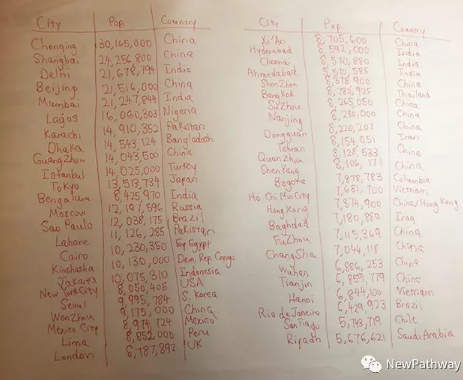 City Pop. Country
Chonging 30,165,000 China
Shanghai 24,256,800 China
Delhi 21,678,794 India
Beijing 21,516,000 China
Mumbai 21,247,844 India
Lagos 16,060,303 Nigeria
Karachi 14,910,352 Pakistan
Dhaka 14,543,124 Bangladesh
GuangZhou 14,043,500 China
Istanbul 14,025,000 Turkey
Tokyo 13,513,734 Japan
Bengaluru 8,425,970 India
Moscow 12,197,596 Russia
Sao Paulo 12,038,175 Brazil
Lahore 11,126,285 Pakistan
Cairo 10,230,350 Egypt
Kinshasha 10,130,000 Dem. Rep. Congo
Jakarta 10,075,310 Indonesia
New York City 8,050,405 USA
Seoul 9,995,784 S. Korea
WenZhou 9,175,000 China
Mexico City 8,974,724 Mexico
Lima 8,852,000 Peru
London 8,787,892 UK
City Pop. Country
Xi'An 8,705,600 China
Hyderabad 8,592,000 India
Chennai 8,510,880 India
Ahmedabad 8,510,585 India
ShenZhen 8,378,900 China
Bangkok 8,280,925 Thailand
SuZhou 8,265,050 China
Nanjing 8,230,000 China
Dongguan 8,220,207 China
Tehran 8,154,051 Iran
QuanZhou 8,128,533 China
ShenYang 8,106,171 China
Bogota 7,878,783 Columbia
Ho Chi Min City 7,681,700 Vietnam
HongKong 7,374,900 China/Hong Kong
Baghdad 7,180,889 Iraq
FuZhou 7,115,369 China
ChangSha 7,044,118 China
Wuhan 6,886,253 China
Tianjin 5,859,779 China
Hanoi 6,844,100 Vietnam
Rio de Janeiro 6,429,923 Brazil
Santiago 5,743,719 Chile
Riyadh 5,676,621 Saudi Arabia
NewPathway